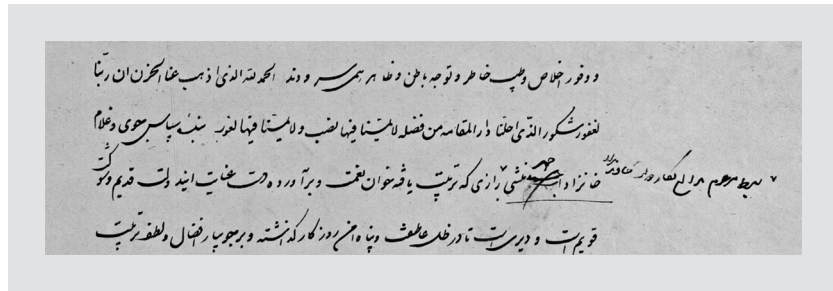 و وفور اخلاص وطیب خاطر و توجه باطن و ظاهر همی سرودند الحمد لله الذی اذهب عنا الحزن ان ربنا
لغفور شکور الذی احلنا دار المقامه من فضله لا یمسنا فیها نصب و لا یمسنا فیها لغوب بنده سپاس جوی و غلام
خانزاد منشی رازی که تربیت یافته خوان نعمت و برآورده دست عنایت این دولت قدیم و شوکت
قویم است و دیری است تا در ظل عاطفت و پناه امن روزگار گذاشته و بر جویبار افضال و لطف تربیت